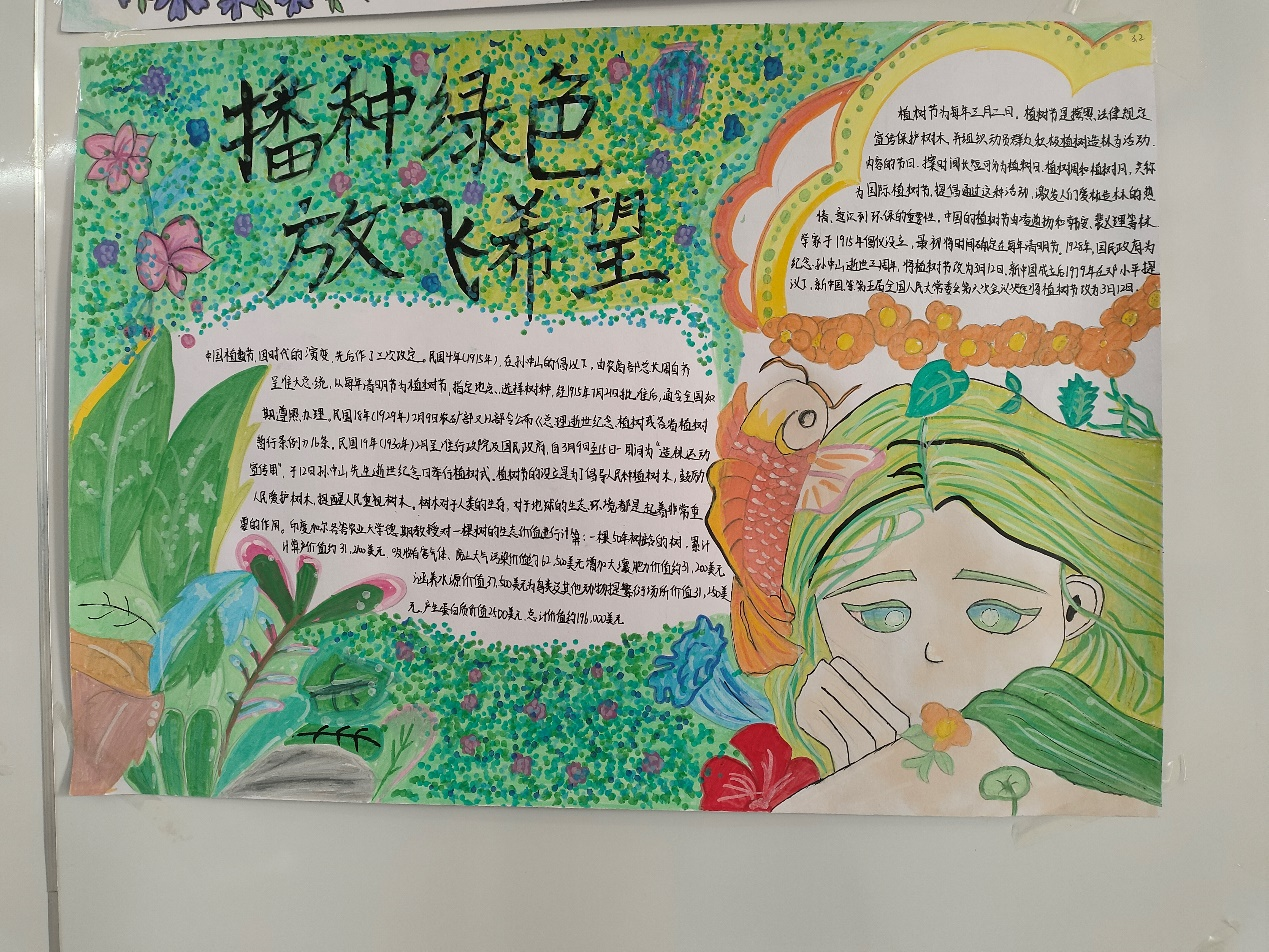 播种绿色
放飞希望
8.2
植树节为每年三月二日,植树节是按照法律规定
宣传保护树木,并组织动员群众积极植树造林为活动
内容的节日.按时间长短可分为植树日.植树周和植树月,共称
为国际植树节,提倡通过这种活动,激发人们爱林造林的热
情、意识到环保的重要性,中国的植树节由凌道扬和韩安、裴义理等林
学家于1915年倡议设立,最初将时间确定在每年清明节.1928年,国民政府为
纪念孙中山逝世三周年,将植树节改为3月12日.新中国成立后1979年在邓小平提
议下,新中国第五届全国人民大常委会第六次会议决定将植树节改为3月12日.
中国植树节,因时代的演变,先后作了三次改定。民国4年(1915年),在孙中山的倡议下,由农商部总长周自齐
呈准大总统,以每年清明节为植树节,指定地点、选择树种,经1915年7月21日批准后,通令全国如
期遵照办理。民国18年(1929年)2月9日农矿部又以部令公布《总理逝世纪念植树式各省植树
暂行条例》16条。民国19年(1930年)2月呈准行政院及国民政府,自3月9日至15日一周间为"造林运动
宣传周",于12日孙中山先生逝世纪念日举行植树式。植树节的设立是为了倡导人民种植树木,鼓励
人民爱护树木,提醒人民重视树木。树木对于人类的生存,对于地球的生态环境都是起着非常重
要的作用。印度加尔各答农业大学德斯教授对一棵树的生态价值进行计算:一棵50年树龄的树,累计
计算产价值约31,200美元.吸收有害气体、防止大气污染价值约62,500美元增加土壤肥力价值约31,200美元
涵养水源价值37,500美元为鸟类及其他动物提繁衍场所价值31,250美
元.产生蛋白质价值2500美元.总计价值约196,000美元